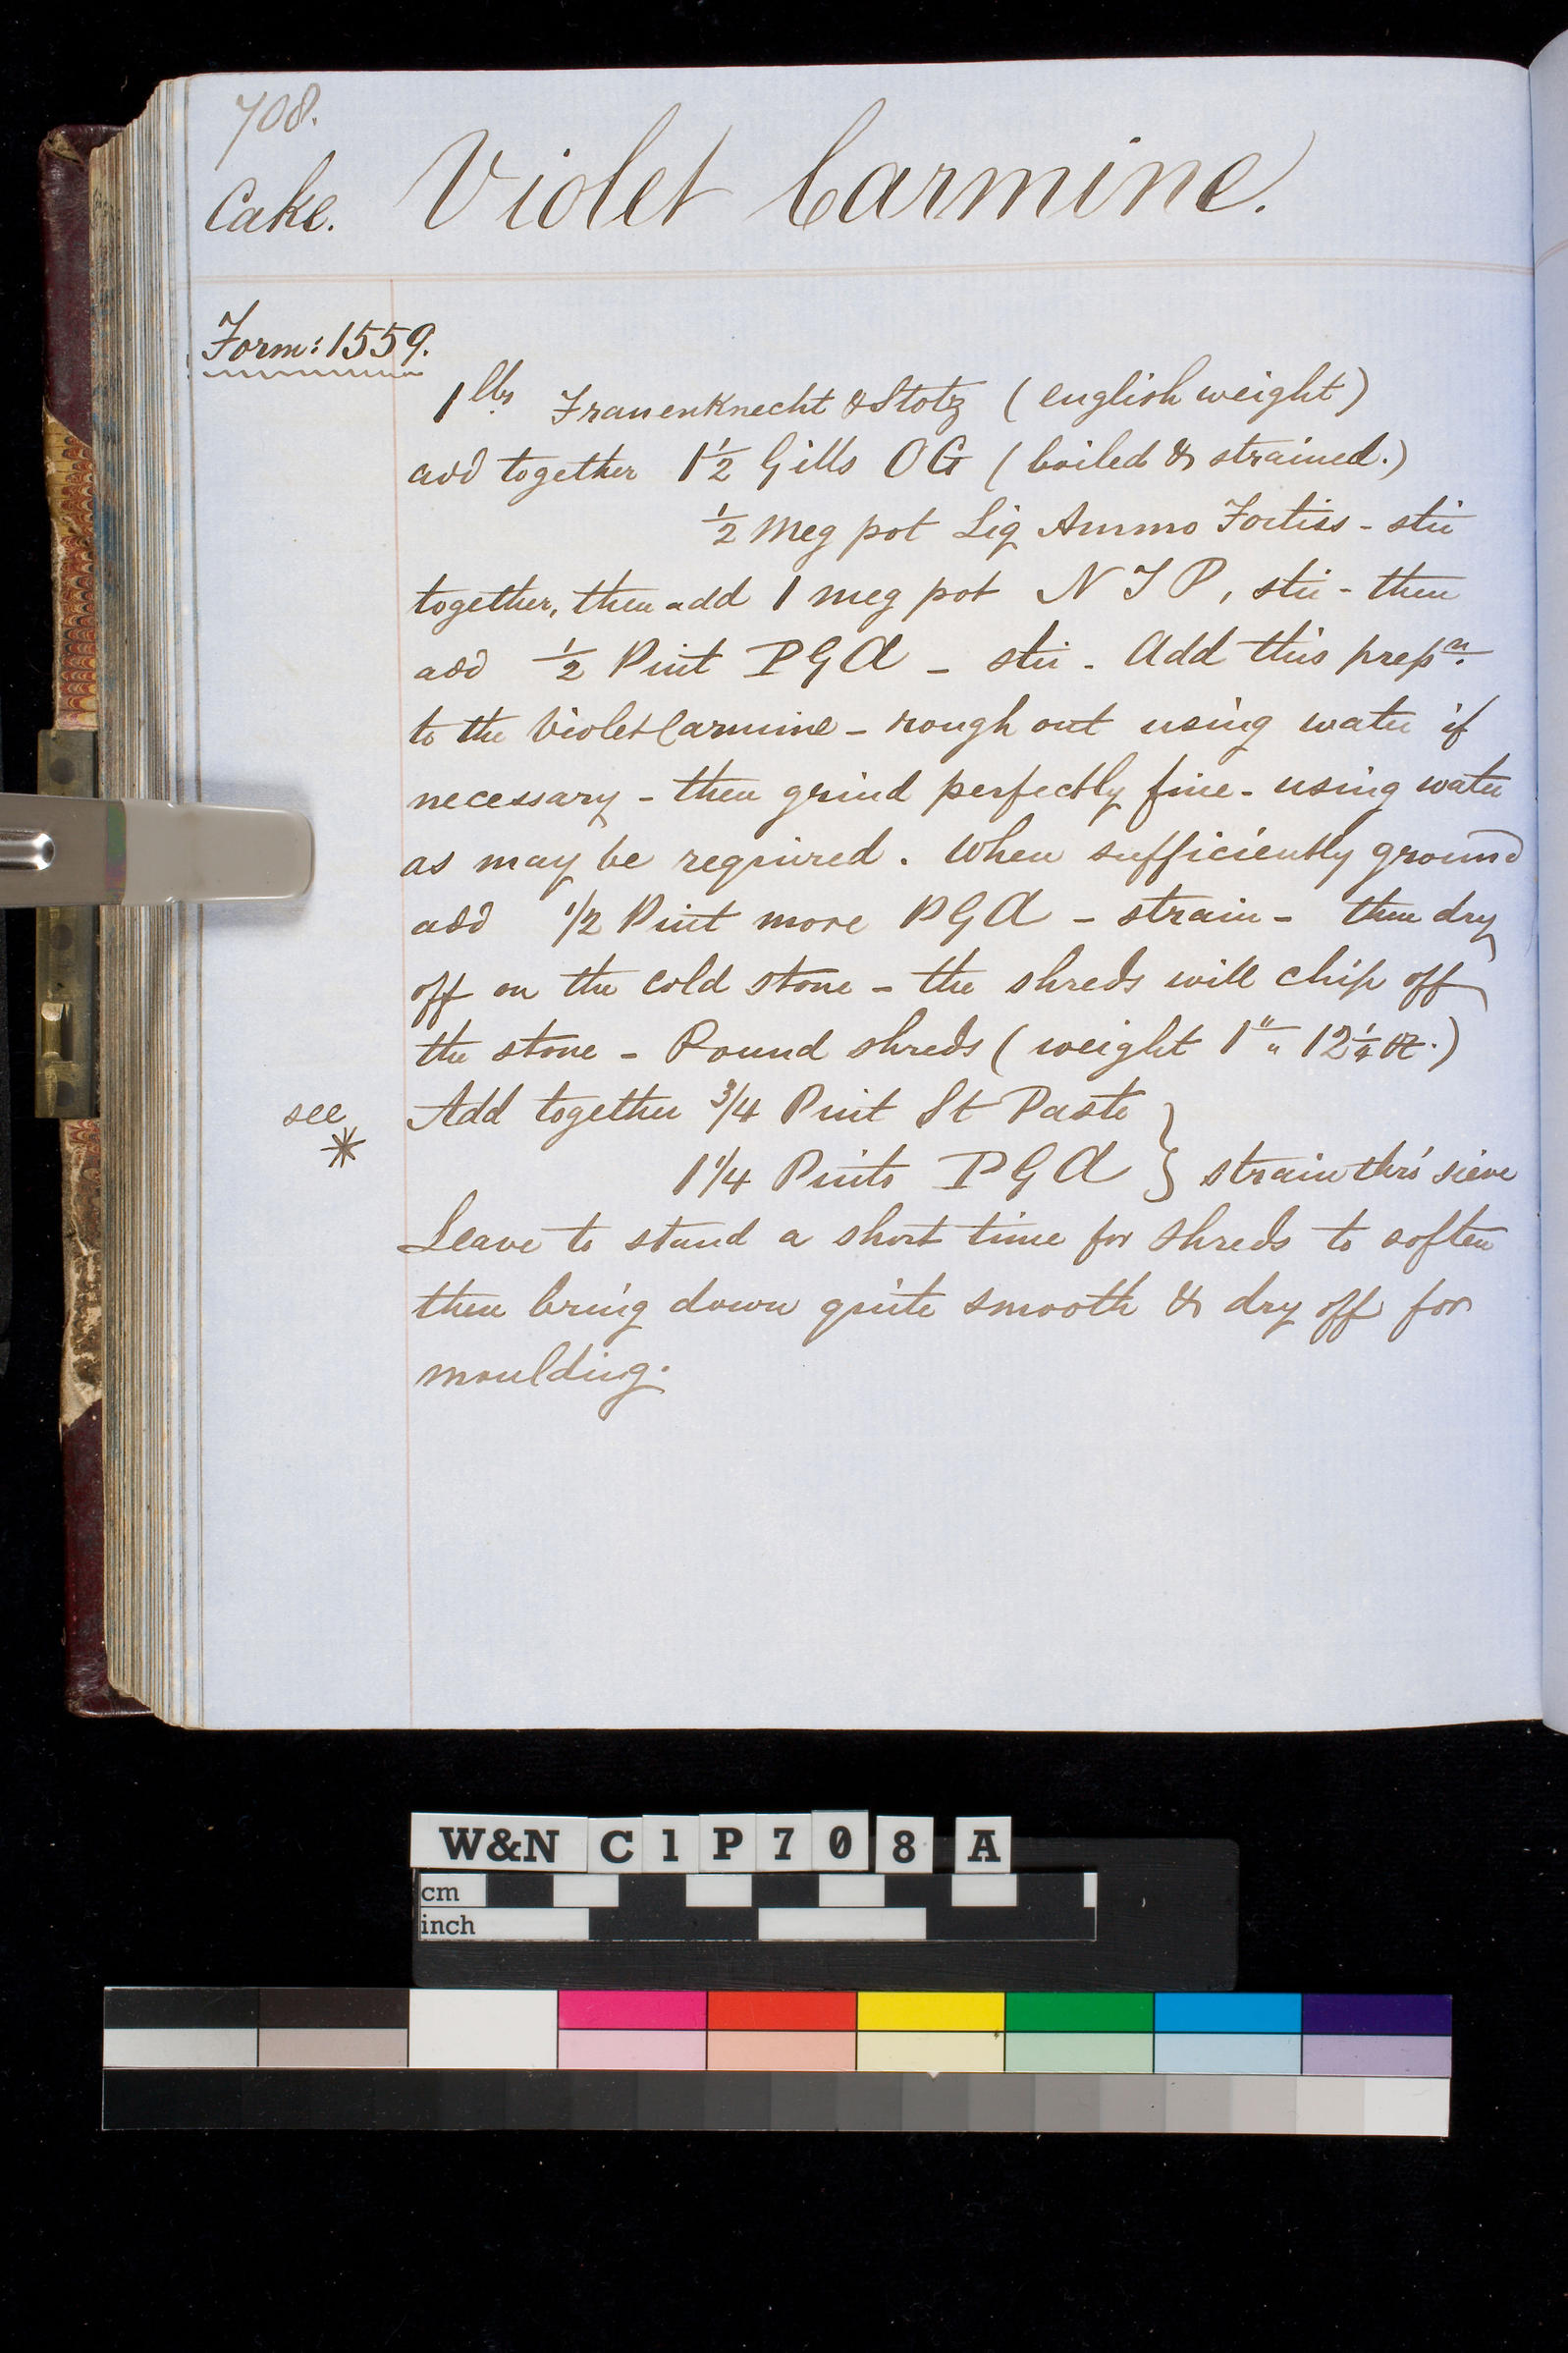 708.
Cake. Violet Carmine.
Form: 1559.
1 lbs Frauenknecht & Stotz (english weight)
add together 1½ Gills OG (boiled & strained.)
½ Meg pot Liq Ammo Fortiss - stir
together, then add 1 meg pot N T P, stir - then
add ½ Pint PGA - stir. Add this prepn.
to the Violet Carmine - rough out using water if
necessary - then grind perfectly fine - using water
as may be required. When sufficiently ground
add 1/2 Pint more PGA - strain - then dry
off on the cold stone - the shreds will chip off
the stone - Pound shreds (weight 1 lb " 12¼ oz.)
see
* Add together 3/4 Pint St Paste
1 1/4 Pints PGA } strain thro' sieve
Leave to stand a short time for shreds to soften
then bring down quite smooth & dry off for
moulding.
W&N C1P708 A
cm
inch